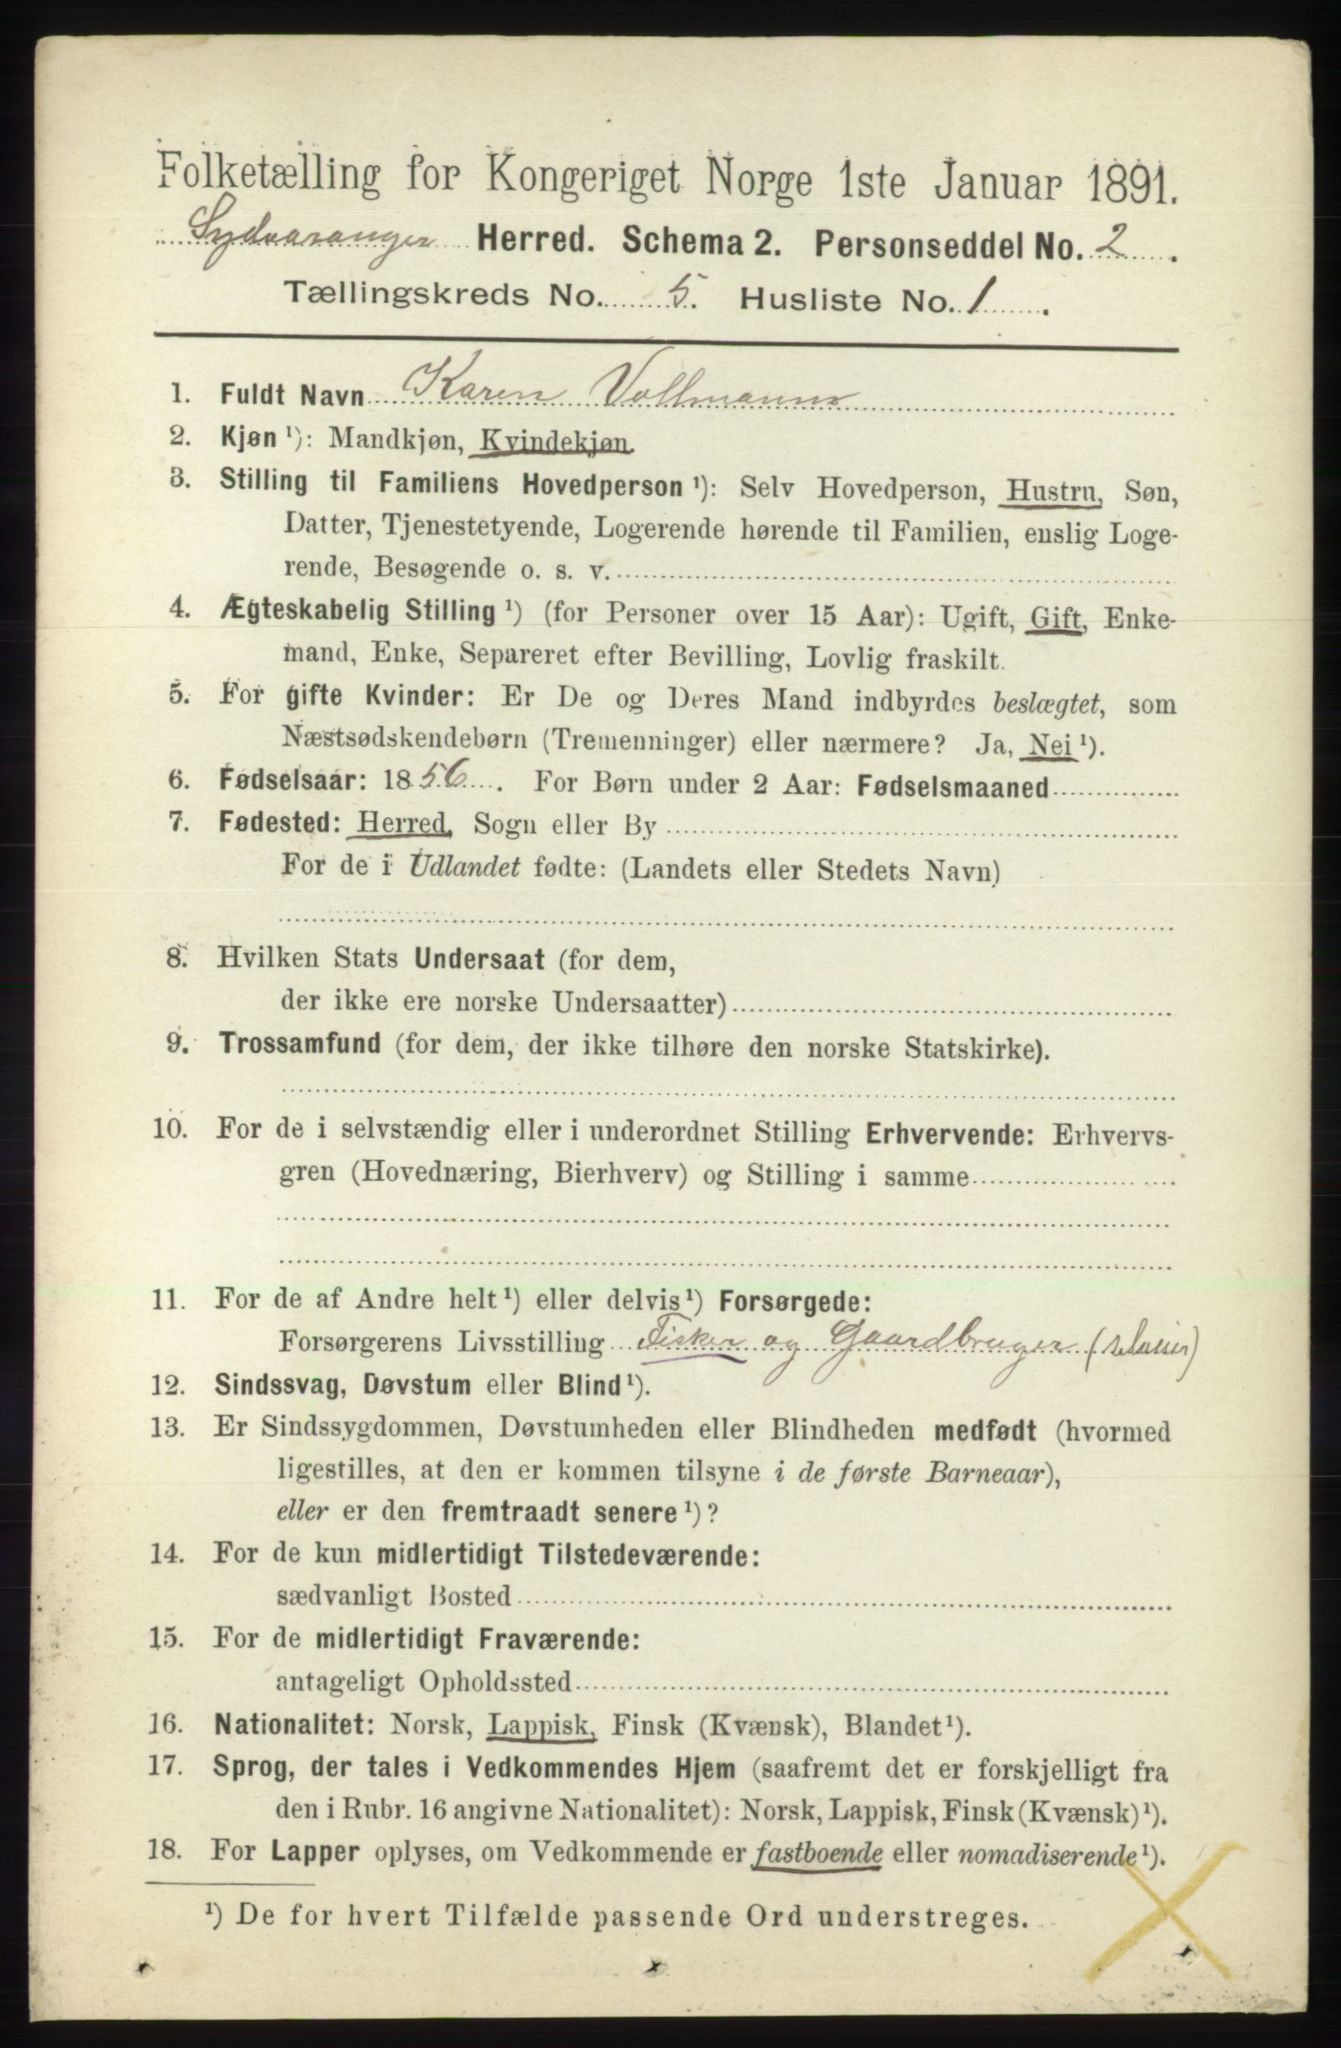 Folketælling for Kongeriget Norge 1ste Januar 1891.
Sydvaranger Herred. Schema 2. Personseddel No. 2.
Tællingskreds No. 5. Husliste No. 1.
1. Fuldt Navn Karen Vollmann
2. Kjøn ¹): Mandkjøn, Kvindekjøn.
3. Stilling til Familiens Hovedperson ¹): Selv Hovedperson, Hustru, Søn,
Datter, Tjenestetyende, Logerende hørende til Familien, enslig Loge-
rende, Besøgende o. s. v.
4. Ægteskabelig Stilling ¹) (for Personer over 15 Aar): Ugift, Gift, Enke-
mand, Enke, Separeret efter Bevilling, Lovlig fraskilt.
5. For gifte Kvinder: Er De og Deres Mand indbyrdes beslægtet, som
Næstsødskendebørn (Tremenninger) eller nærmere? Ja, Nei ¹).
6. Fødselsaar: 1856. For Børn under 2 Aar: Fødselsmaaned
7. Fødested: Herred, Sogn eller By
For de i Udlandet fødte: (Landets eller Stedets Navn)
8. Hvilken Stats Undersaat (for dem,
der ikke ere norske Undersaatter)
9. Trossamfund (for dem, der ikke tilhøre den norske Statskirke).
10. For de i selvstændig eller i underordnet Stilling Erhvervende: Erhvervs-
gren (Hovednæring, Bierhverv) og Stilling i samme
11. For de af Andre helt ¹) eller delvis ¹) Forsørgede:
Forsørgerens Livsstilling Fisker og Gaardbruger (selveier)
12. Sindssvag, Døvstum eller Blind ¹).
13. Er Sindssygdommen, Døvstumheden eller Blindheden medfødt (hvormed
ligestilles, at den er kommen tilsyne i de første Barneaar),
eller er den fremtraadt senere ¹)?
14. For de kun midlertidigt Tilstedeværende:
sædvanligt Bosted
15. For de midlertidigt Fraværende:
antageligt Opholdssted
16. Nationalitet: Norsk, Lappisk, Finsk (Kvænsk), Blandet ¹).
17. Sprog, der tales i Vedkommendes Hjem (saafremt det er forskjelligt fra
den i Rubr. 16 angivne Nationalitet): Norsk, Lappisk, Finsk (Kvænsk) ¹).
18. For Lapper oplyses, om Vedkommende er fastboende eller nomadiserende ¹).
¹) De for hvert Tilfælde passende Ord understreges.